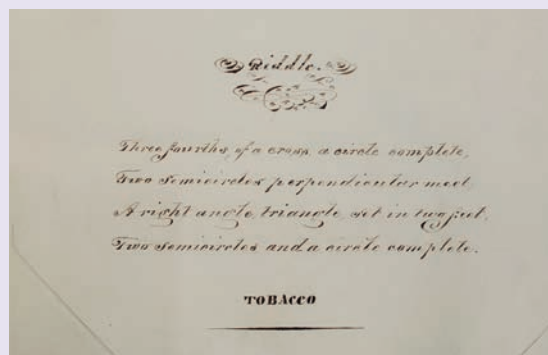 Riddle.
Three fourths, of a cross, a circle complete,
Two semicircles perpendicular meet,
A right angle, triangle, set in two feet,
Two semicircles and a circle complete.
TOBACCO